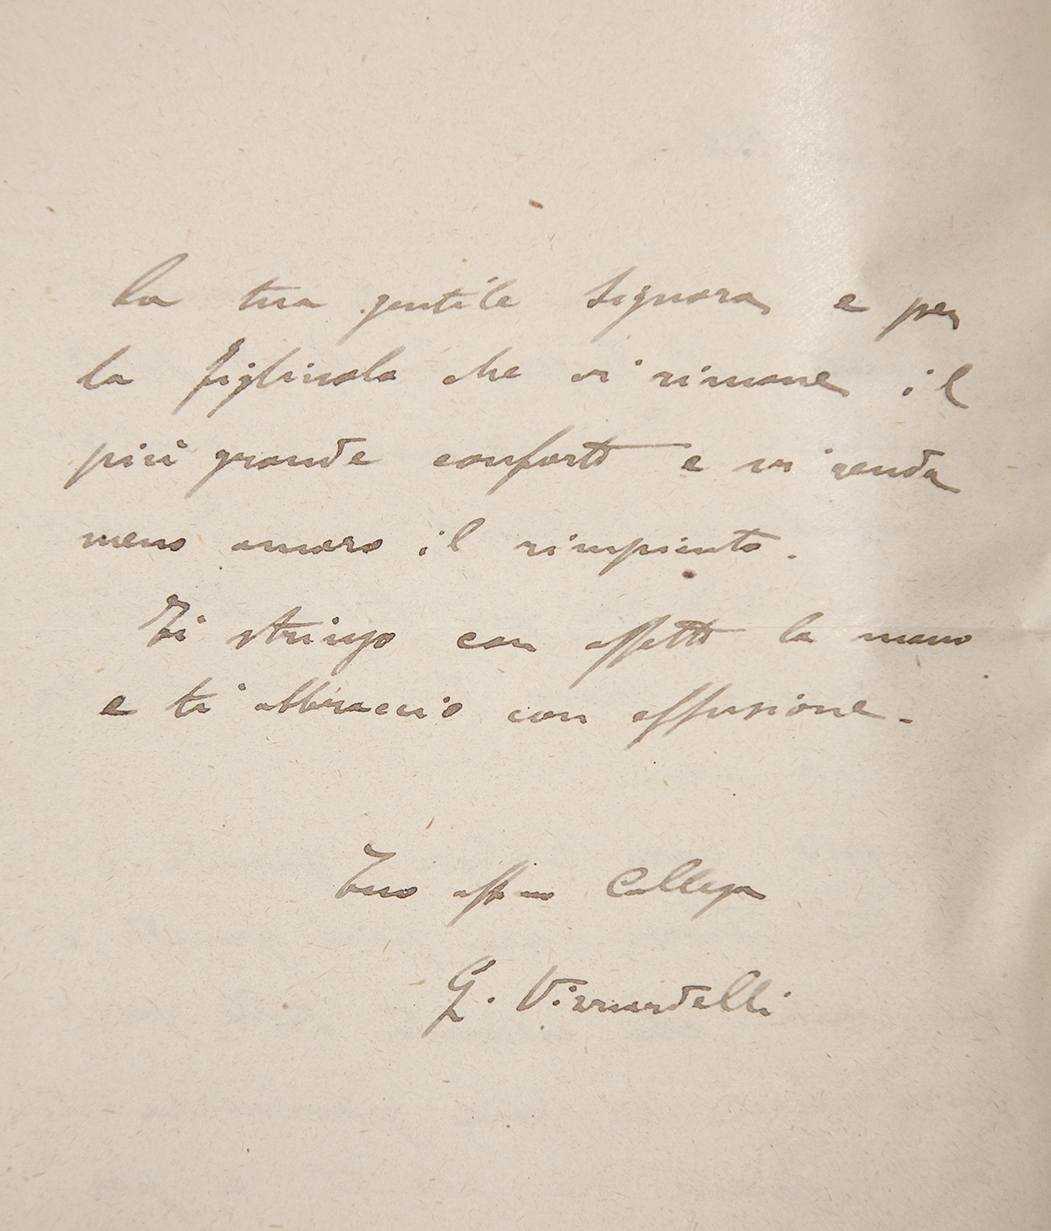 la tua gentile Signora e per
la figliuola che vi rimane il
più grande conforto e vi renda
meno amaro il rimpianto.
Ti stringo con affetto la mano
e ti abbraccio con effusione.
Tuo affmo Collega
G.